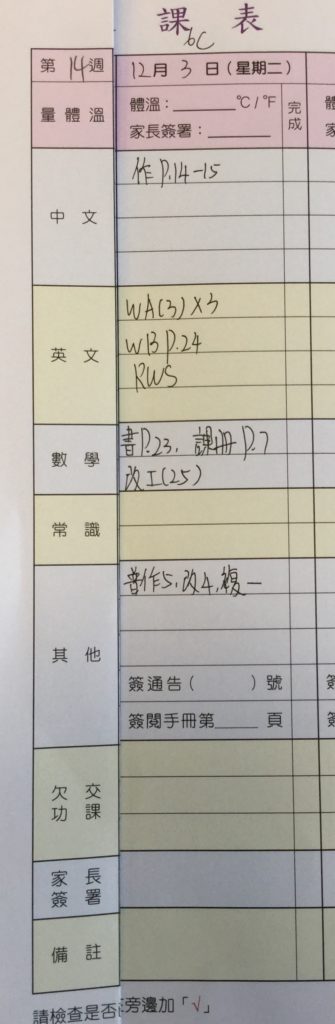 課 表
6C
第 14 週 12月 3 日(星期二)
量體溫 體溫:______°C/°F 完成
家長簽署:______
中文 作 P.14-15
英文 WA(3)×3
WB P.24
RWS
數學 書P.23, 課冊 P.7
改工(25)
常識
其他 普作5, 改4, 複一
簽通告( )號
簽閱手冊第____頁
欠交功課
家長簽署
備註
請檢查是否 旁邊加「√」